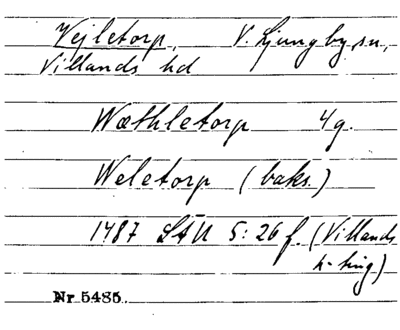 Vejletorp, V. Ljungby sn,
Villands hd
Wæthletorp 4g.
Weletorp (baks.)
1487 LÅU 5:26 f. (Villands
h-ting)
Nr 5485.